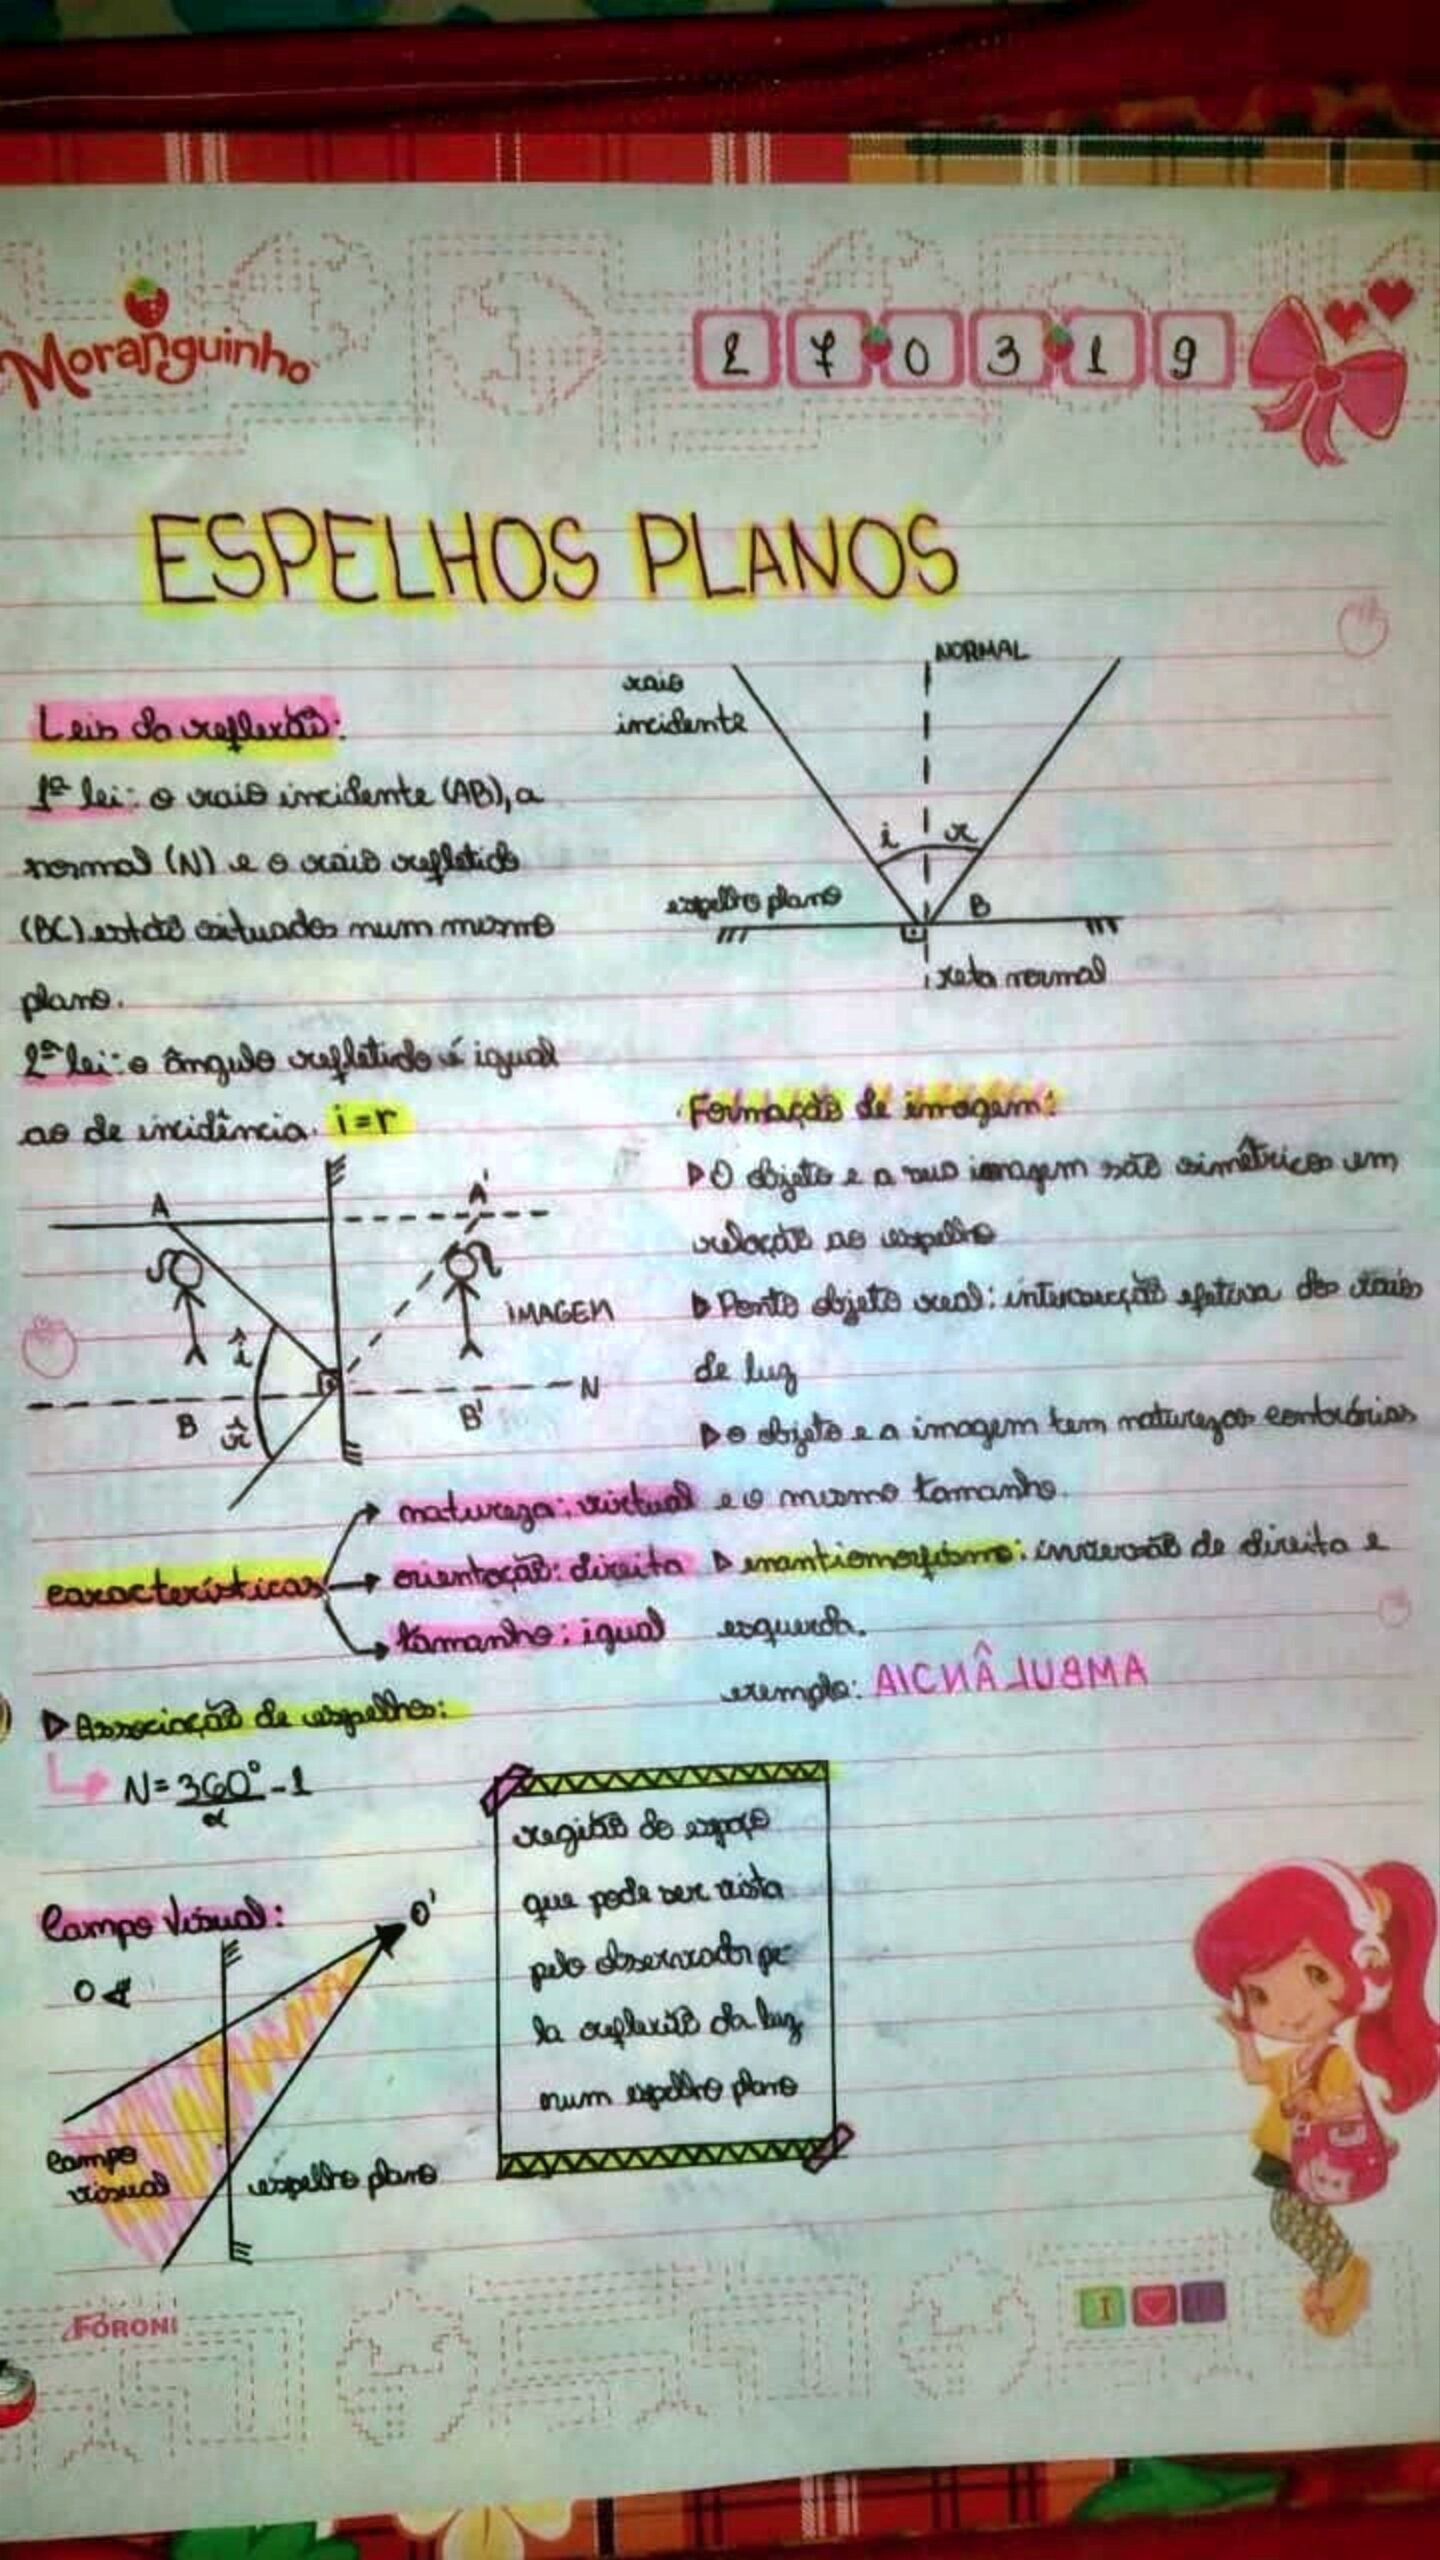 Moranguinho
27 03 19
ESPELHOS PLANOS
NORMAL
raio
incidente
i r
espelho plano
B
reta normal
Leis da reflexão:
1ª lei: o raio incidente (AB), a
normal (N) e o raio refletido
(BC) estão situados num mesmo
plano.
2ª lei: o ângulo refletido é igual
ao de incidência. i=r
A A'
IMAGEM
î
N
B B'
r̂
Formação de imagem:
▷ O objeto e a sua imagem são simétricos em
relação ao espelho
▷ Ponto objeto real: intersecção efetiva dos raios
de luz
▷ o objeto e a imagem tem naturezas contrárias
e o mesmo tamanho.
▷ enantiomorfismo: inversão de direita e
esquerda.
exemplo: AMBULÂNCIA
características
natureza: virtual
orientação: direita
tamanho: igual
▷ Associação de espelhos:
N = 360° - 1
α
Campo Visual:
O'
O
campo
visual
espelho plano
região do espaço
que pode ser vista
pelo observador pe-
la reflexão da luz
num espelho plano
FORONI
I